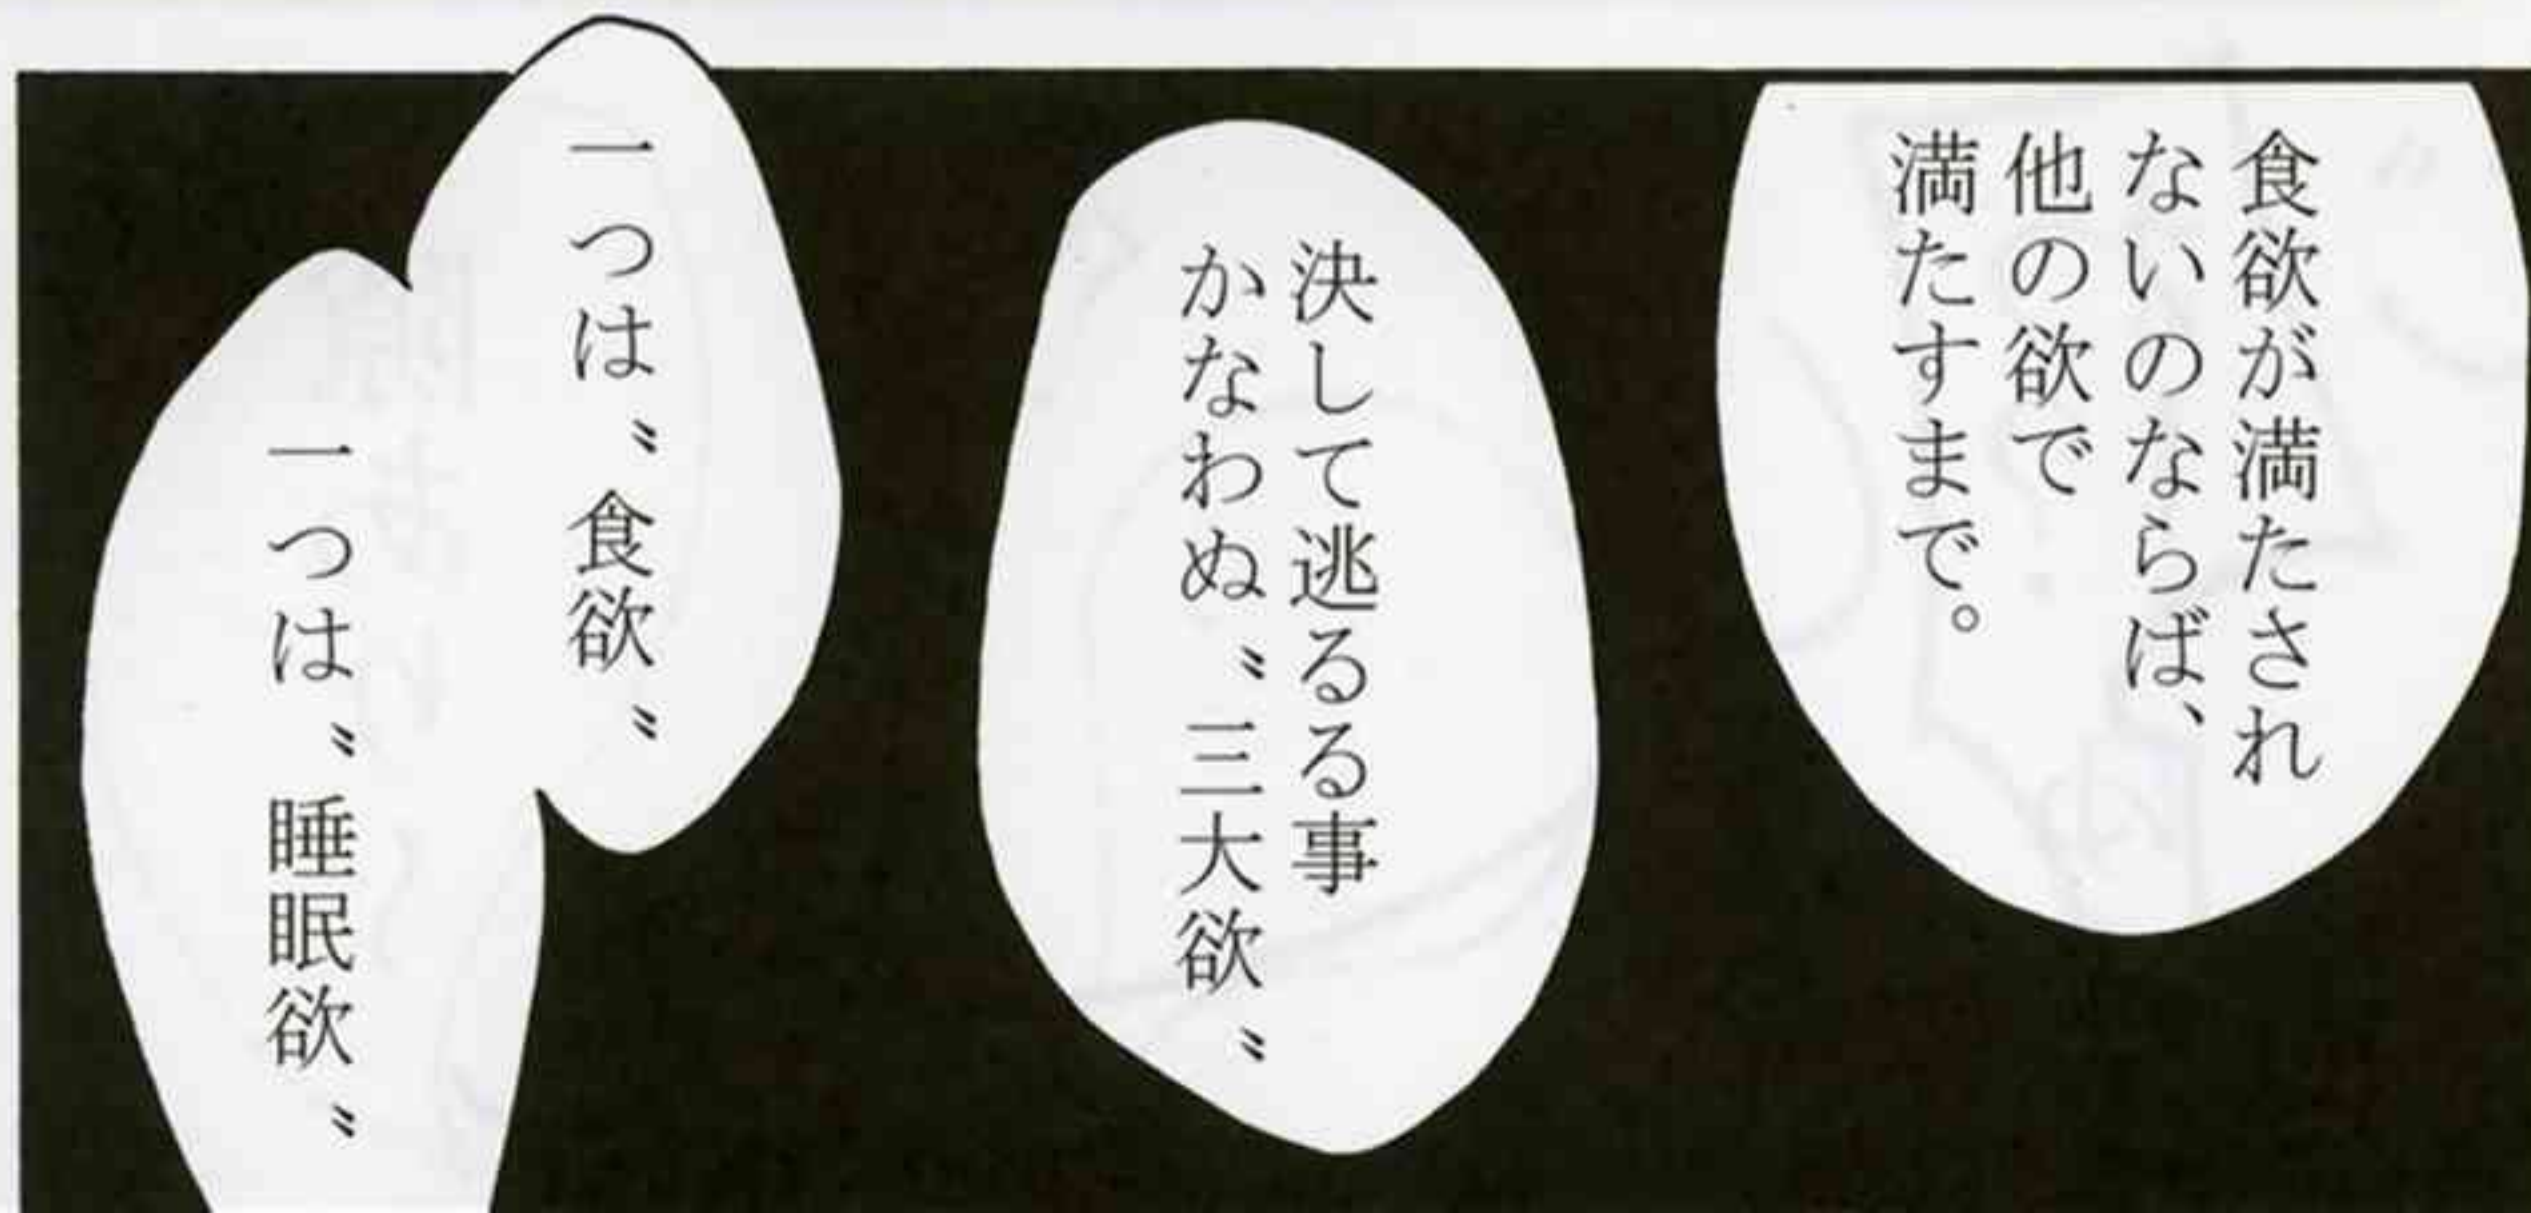 食欲が満たされ
ないのならば、
他の欲で
満たすまで。
決して逃るる事
かなわぬ〝三大欲〟
一つは〝食欲〟
一つは〝睡眠欲〟